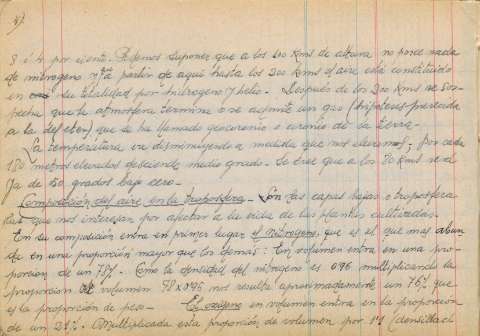 3 ó 4 por ciento. Podemos suponer que a los 100 Kms de altura no posee nada
de nitrogeno y a partir de aquí hasta los 300 Kms el aire está constituido
en su totalidad por hidrogeno y helio. - Despues de los 300 Kms se sos-
pecha que la atmosfera termina o se admite un gas (hipótesis parecida
a la del eter), que se ha llamado geocoronio o coronio de la tierra.
La temperatura va disminuyendo a medida que nos elevamos; por cada
180 metros elevados desciende medio grado. Se cree que a los 70 Kms será
ya de 50 grados bajo cero.-
Composición del aire en la troposfera. - Son las capas bajas o troposfera
las que nos interesan por afectar a la vida de las plantas cultivadas.
En su composición entra en primer lugar el nitrógeno, que es el que mas abun
da en una proporción mayor que los demas: En volumen entra en una pro-
porcion de un 78%. Como la densidad del nitrogeno es 0'96 multiplicando la
proporción de volumen 78 x 0'96 nos resulta aproximadamente un 76% que
es la proporción de peso - El oxígeno en volumen entra en la proporción
de un 21%. Multiplicada esta proporción de volumen por 1'1 (densidad